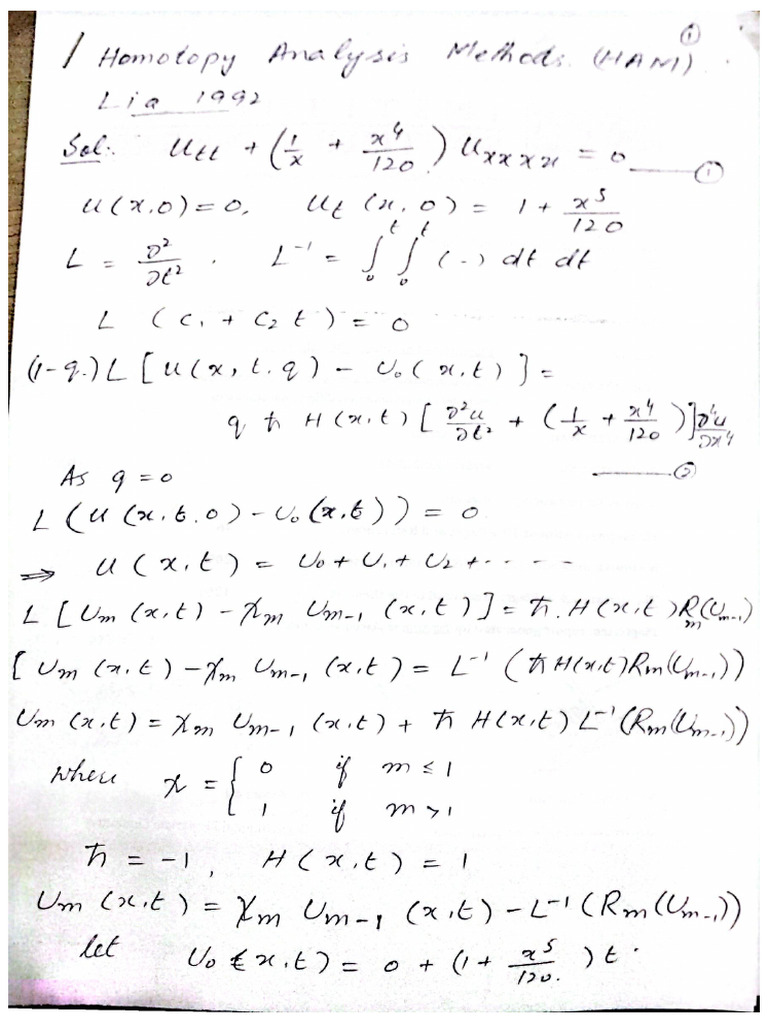 ①
1 Homotopy Analysis Methods (HAM).
Lia 1992
Sol:. Utt + (1/x + x⁴/120) Uxxxx = 0 ——①
U(x,0)=0, Ut(x,0) = 1 + x⁵/120
L = ∂²/∂t² . L⁻¹ = ∫₀ᵗ ∫₀ᵗ (–) dt dt
L (C₁ + C₂ t) = 0
(1-q)L [U(x,t.q) – U₀(x,t)] =
q ħ H(x,t) [∂²u/∂t² + (1/x + x⁴/120)]∂⁴u/∂x⁴
——②
As q=0
L(U(x,t.0) – U₀(x,t)) = 0
⇒ U(x,t) = U₀ + U₁ + U₂ + - - - -
L[Um(x,t) – χm Um-1(x,t)] = ħ.H(x,t)Rm(Um-1)
[Um(x,t) – χm Um-1(x,t) = L⁻¹(ħH(x,t)Rm(Um-1))
Um(x,t) = χm Um-1(x,t) + ħ H(x,t) L⁻¹(Rm(Um-1))
where χ = { 0 if m ≤ 1
1 if m > 1
ħ = -1, H(x,t) = 1
Um(x,t) = χm Um-1(x,t) – L⁻¹(Rm(Um-1))
let U₀(x,t) = 0 + (1 + x⁵/120.)t.